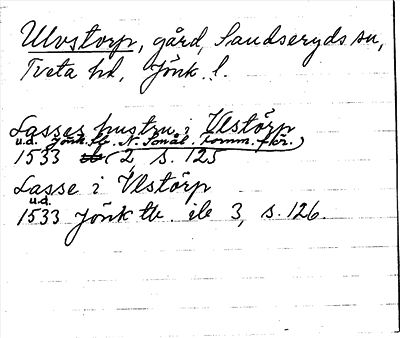 Ulvstorp, gård, Sandseryds sn,
Tveta hd, Jönk. l.
Lasses hustru i Ulstörp
u.d. Jönk. tb. N. Smål. fornm. fkr.)
1533 (2, s. 125
Lasse i Ulstörp
u.d.
1533 Jönk tb. ib 3, s. 126.